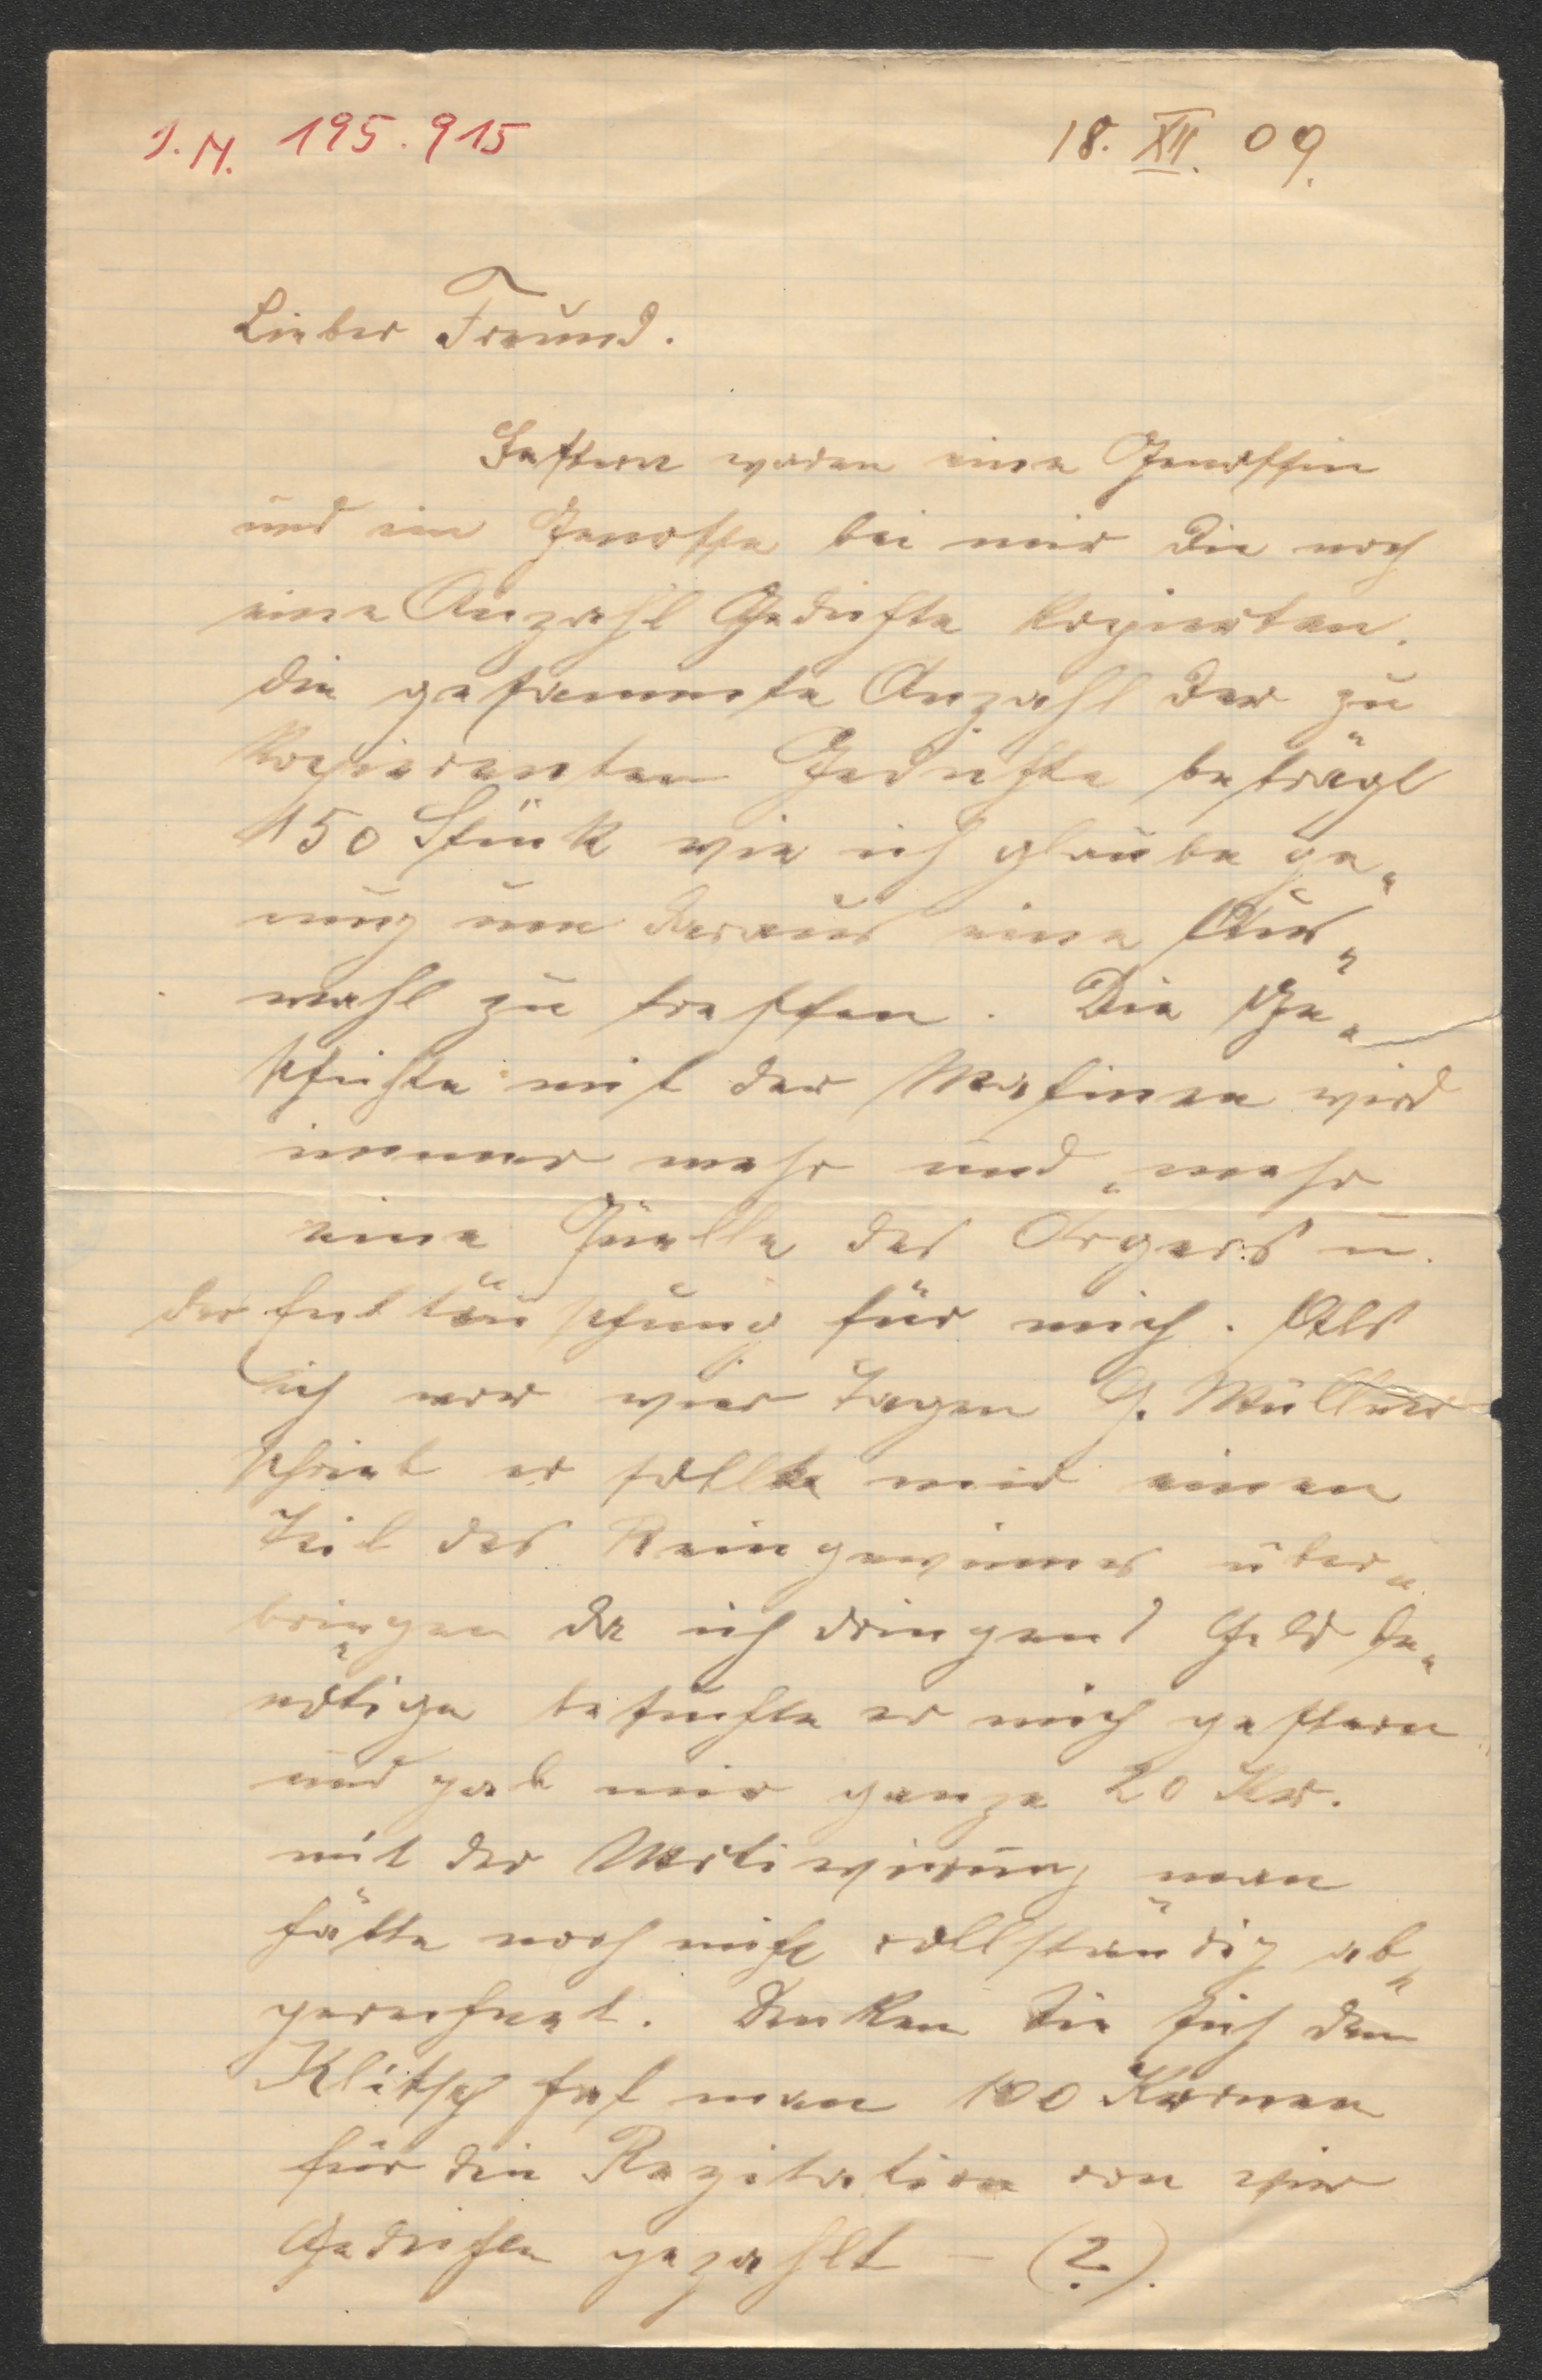 J. N. 195.915
18. XII. 09.
Lieber Freund.
Gestern waren eine Genossin
und ein Genosse bei mir die noch
eine Anzahl Gedichte kopierten.
die gesammte Anzahl der zu
kopierenten Gedichte beträgt
150 Stück wie ich glaube ge„
nug um daraus eine Aus„
wahl zu treffen. Die Ge„
schichte mit der Matinee wird
immer mehr und mehr
eine Quelle des Ärgers u.
der Enttäuschung für mich. Als
ich vor vier Tagen G. Müller
schrieb er sollte mir einen
Teil des Reingewinnes über„
bringen da ich dringend Geld be„
nötige besuchte er mich gestern
und gab mir ganze 20 Kr.
mit der Motiwirung man
hätte noch nicht vollständig ab„
gerechnet. Denken Sie sich dem
Klitsch hat man 100 Kronen
für die Rezitation von vier
Gedichten gezahlt – (?).